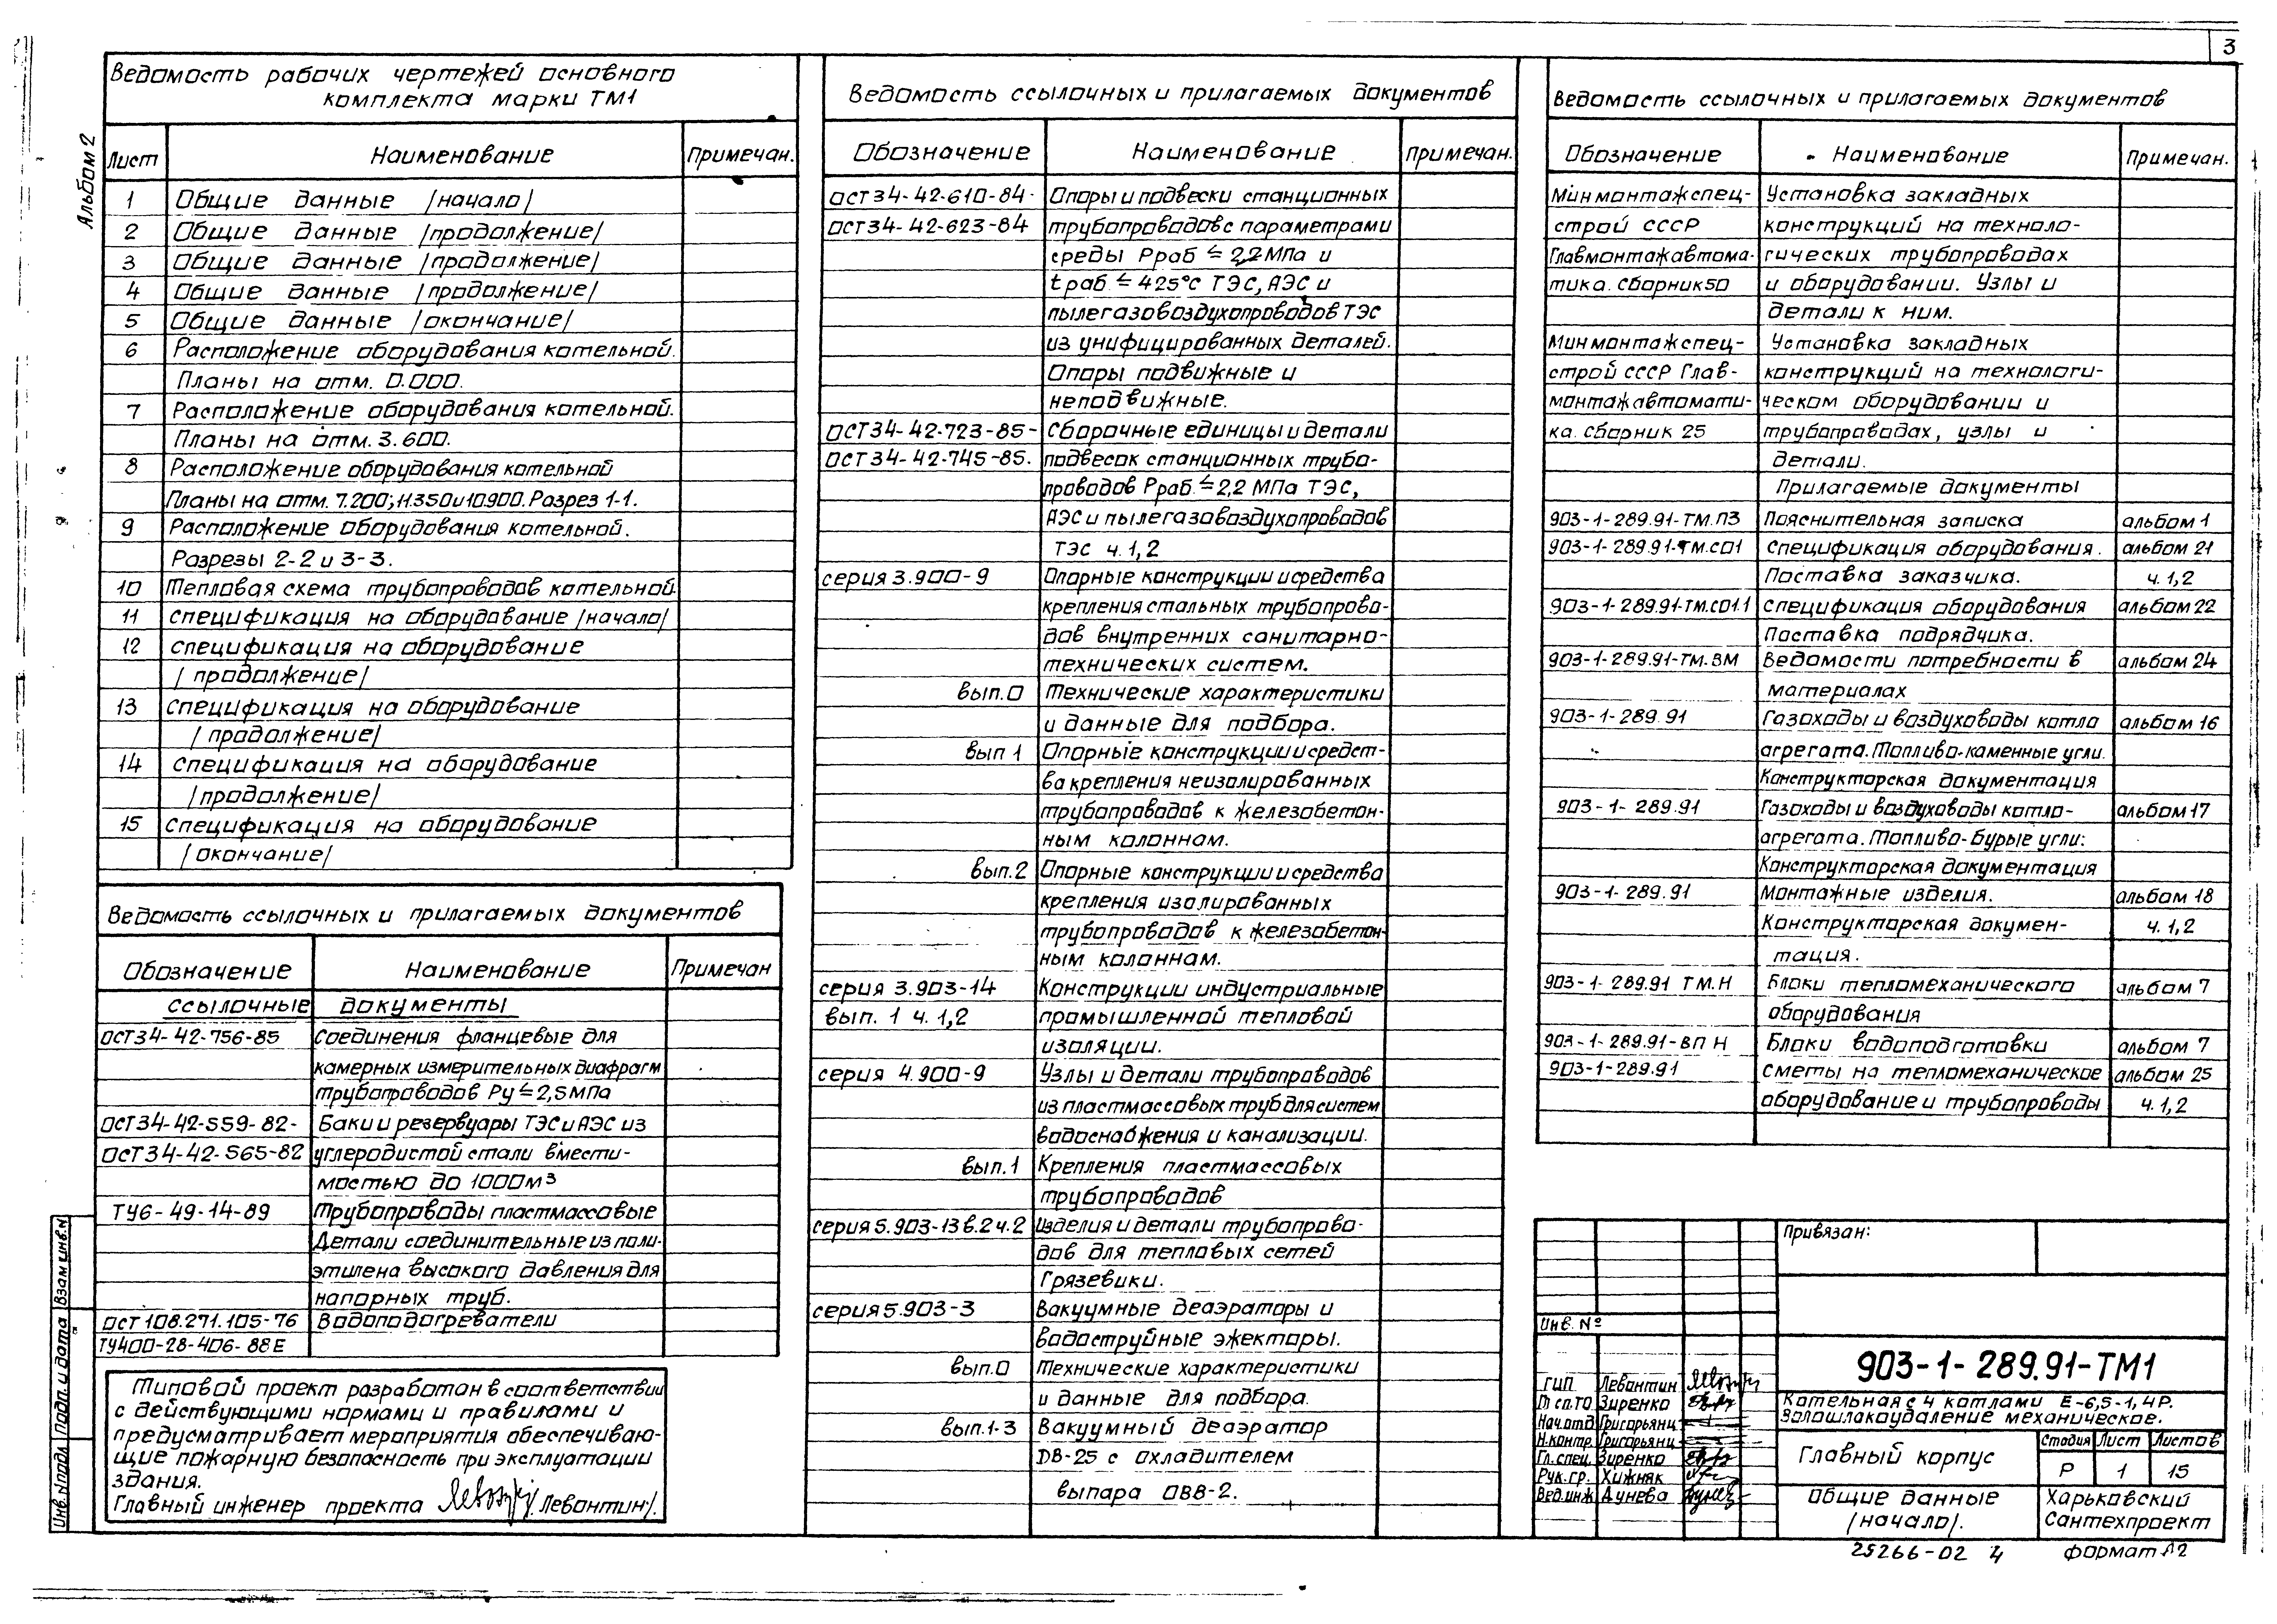 3
Альбом 2
Ведомость рабочих чертежей основного
комплекта марки ТМ1
Лист Наименование Примечан.
1 Общие данные /начало/
2 Общие данные /продолжение/
3 Общие данные /продолжение/
4 Общие данные /продолжение/
5 Общие данные /окончание/
6 Расположение оборудования котельной.
Планы на отм. 0.000.
7 Расположение оборудования котельной.
Планы на отм. 3.600.
8 Расположение оборудования котельной
Планы на отм. 7.200; 11.350 и 10.900. Разрез 1-1.
9 Расположение оборудования котельной.
Разрезы 2-2 и 3-3.
10 Тепловая схема трубопроводов котельной.
11 Спецификация на оборудование /начало/
12 Спецификация на оборудование
/продолжение/
13 Спецификация на оборудование
/продолжение/
14 Спецификация на оборудование
/продолжение/
15 Спецификация на оборудование
/окончание/
Ведомость ссылочных и прилагаемых документов
Обозначение Наименование Примечан
Ссылочные документы
ОСТ34-42-756-85 Соединения фланцевые для
камерных измерительных диафрагм
трубопроводов Ру ≤ 2,5 МПа
ОСТ34-42-559-82- Баки и резервуары ТЭС и АЭС из
ОСТ34-42-565-82 углеродистой стали вмести-
мостью до 1000м³
ТУ6-49-14-89 Трубопроводы пластмассовые
Детали соединительные из поли-
этилена высокого давления для
напорных труб.
ОСТ 108.271.105-76 Водоподогреватели
ТУ400-28-406-88Е
Типовой проект разработан в соответствии
с действующими нормами и правилами и
предусматривает мероприятия обеспечиваю-
щие пожарную безопасность при эксплуатации
здания.
Главный инженер проекта /Левонтин/.
Ведомость ссылочных и прилагаемых документов
Обозначение Наименование Примечан.
ОСТ34-42-610-84- Опоры и подвески станционных
ОСТ34-42-623-84 трубопроводов с параметрами
среды Рраб ≤ 2,2 МПа и
tраб ≤ 425°С ТЭС, АЭС и
пылегазовоздухопроводов ТЭС
из унифицированных деталей.
Опоры подвижные и
неподвижные.
ОСТ34-42-723-85- Сборочные единицы и детали
ОСТ34-42-745-85. подвесок станционных трубо-
проводов Рраб. ≤ 2,2 МПа ТЭС,
АЭС и пылегазовоздухопроводов
ТЭС ч. 1, 2
серия 3.900-9 Опорные конструкции и средства
крепления стальных трубопрово-
дов внутренних санитарно-
технических систем.
вып.0 Технические характеристики
и данные для подбора.
вып 1 Опорные конструкции и средст-
ва крепления неизолированных
трубопроводов к железобетон-
ным колоннам.
вып.2 Опорные конструкции и средства
крепления изолированных
трубопроводов к железобетон-
ным колоннам.
серия 3.903-14 Конструкции индустриальные
вып. 1 ч. 1,2 промышленной тепловой
изоляции.
серия 4.900-9 Узлы и детали трубопроводов
из пластмассовых труб для систем
водоснабжения и канализации.
вып.1 Крепления пластмассовых
трубопроводов
серия 5.903-13 в.2 ч.2 Изделия и детали трубопрово-
дов для тепловых сетей
Грязевики.
серия 5.903-3 Вакуумные деаэраторы и
водоструйные эжекторы.
вып.0 Технические характеристики
и данные для подбора.
вып.1-3 Вакуумный деаэратор
ДВ-25 с охладителем
выпара ОВВ-2.
Ведомость ссылочных и прилагаемых документов
Обозначение Наименование Примечан.
Минмонтажспец- Установка закладных
строй СССР конструкций на техноло-
Главмонтажавтома- гических трубопроводах
тика. Сборник 50 и оборудовании. Узлы и
детали к ним.
Минмонтажспец- Установка закладных
строй СССР Глав- конструкций на технологи-
монтажавтомати- ческом оборудовании и
ка. Сборник 25 трубопроводах, узлы и
детали.
Прилагаемые документы
903-1-289.91-ТМ.ПЗ Пояснительная записка альбом 1
903-1-289.91-ТМ.СО1 Спецификация оборудования. альбом 21
Поставка заказчика. ч. 1,2
903-1-289.91-ТМ.СО1.1 Спецификация оборудования альбом 22
Поставка подрядчика.
903-1-289.91-ТМ.ВМ Ведомости потребности в альбом 24
материалах
903-1-289.91 Газоходы и воздуховоды котло альбом 16
агрегата. Топливо-каменные угли.
Конструкторская документация
903-1-289.91 Газоходы и воздуховоды котло- альбом 17
агрегата. Топливо-бурые угли.
Конструкторская документация
903-1-289.91 Монтажные изделия. альбом 18
Конструкторская докумен- ч. 1,2
тация.
903-1-289.91 ТМ.Н Блоки тепломеханического альбом 7
оборудования
903-1-289.91-ВП Н Блоки водоподготовки альбом 7
903-1-289.91 Сметы на тепломеханическое альбом 25
оборудование и трубопроводы ч. 1,2
Привязан:
Инв. №
903-1-289.91-ТМ1
ГИП Левонтин
Гл сп.ТО Зиренко
Нач.отд Григорьянц
Н.контр. Григорьянц
Гл.спец. Зиренко
Рук.гр. Хижняк
Вед.инж Дунева
Котельная с 4 котлами Е-6,5-1,4Р.
Золошлакоудаление механическое.
Главный корпус
Стадия Лист Листов
Р 1 15
Общие данные
/начало/.
Харьковский
Сантехпроект
25266-02 4 формат А2
Инв.№подл. Подп. и дата Взам инв.№